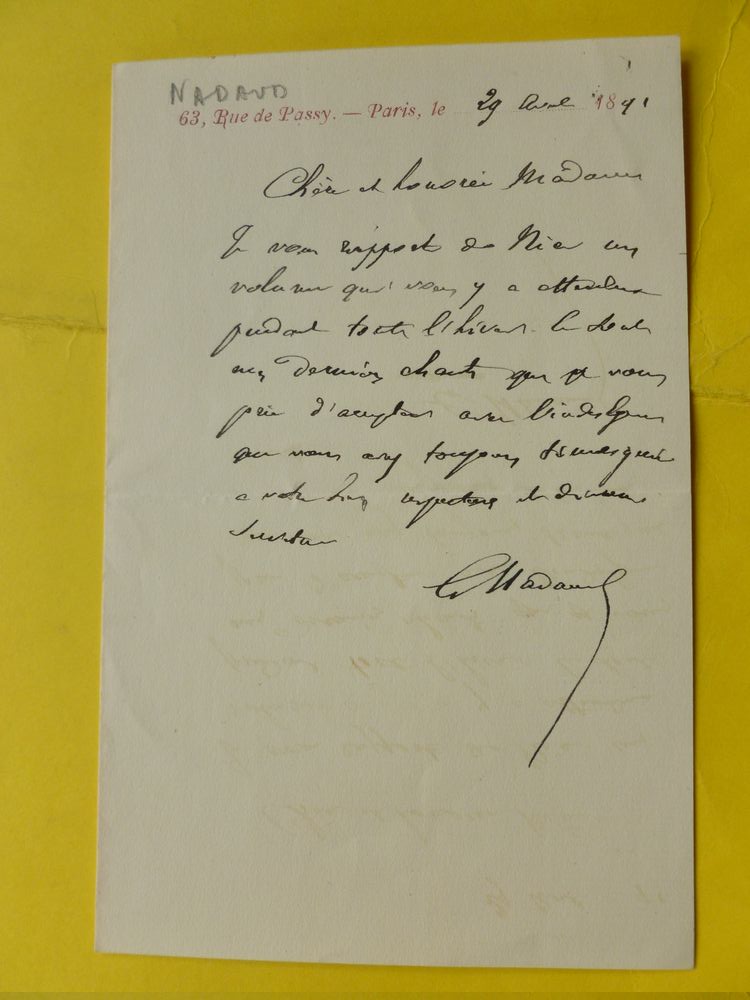 NADAUD
63, Rue de Passy. — Paris, le 29 avril 1891
Chère et honorée Madame
Je vous rapporte de Nice un
volume qui vous y a attendue
pendant tout l'hiver. Ce sont
mes derniers chants que je vous
prie d'accepter avec l'indulgence
que vous avez toujours témoignée
a votre bien respectueux et dévoué
serviteur
G Nadaud